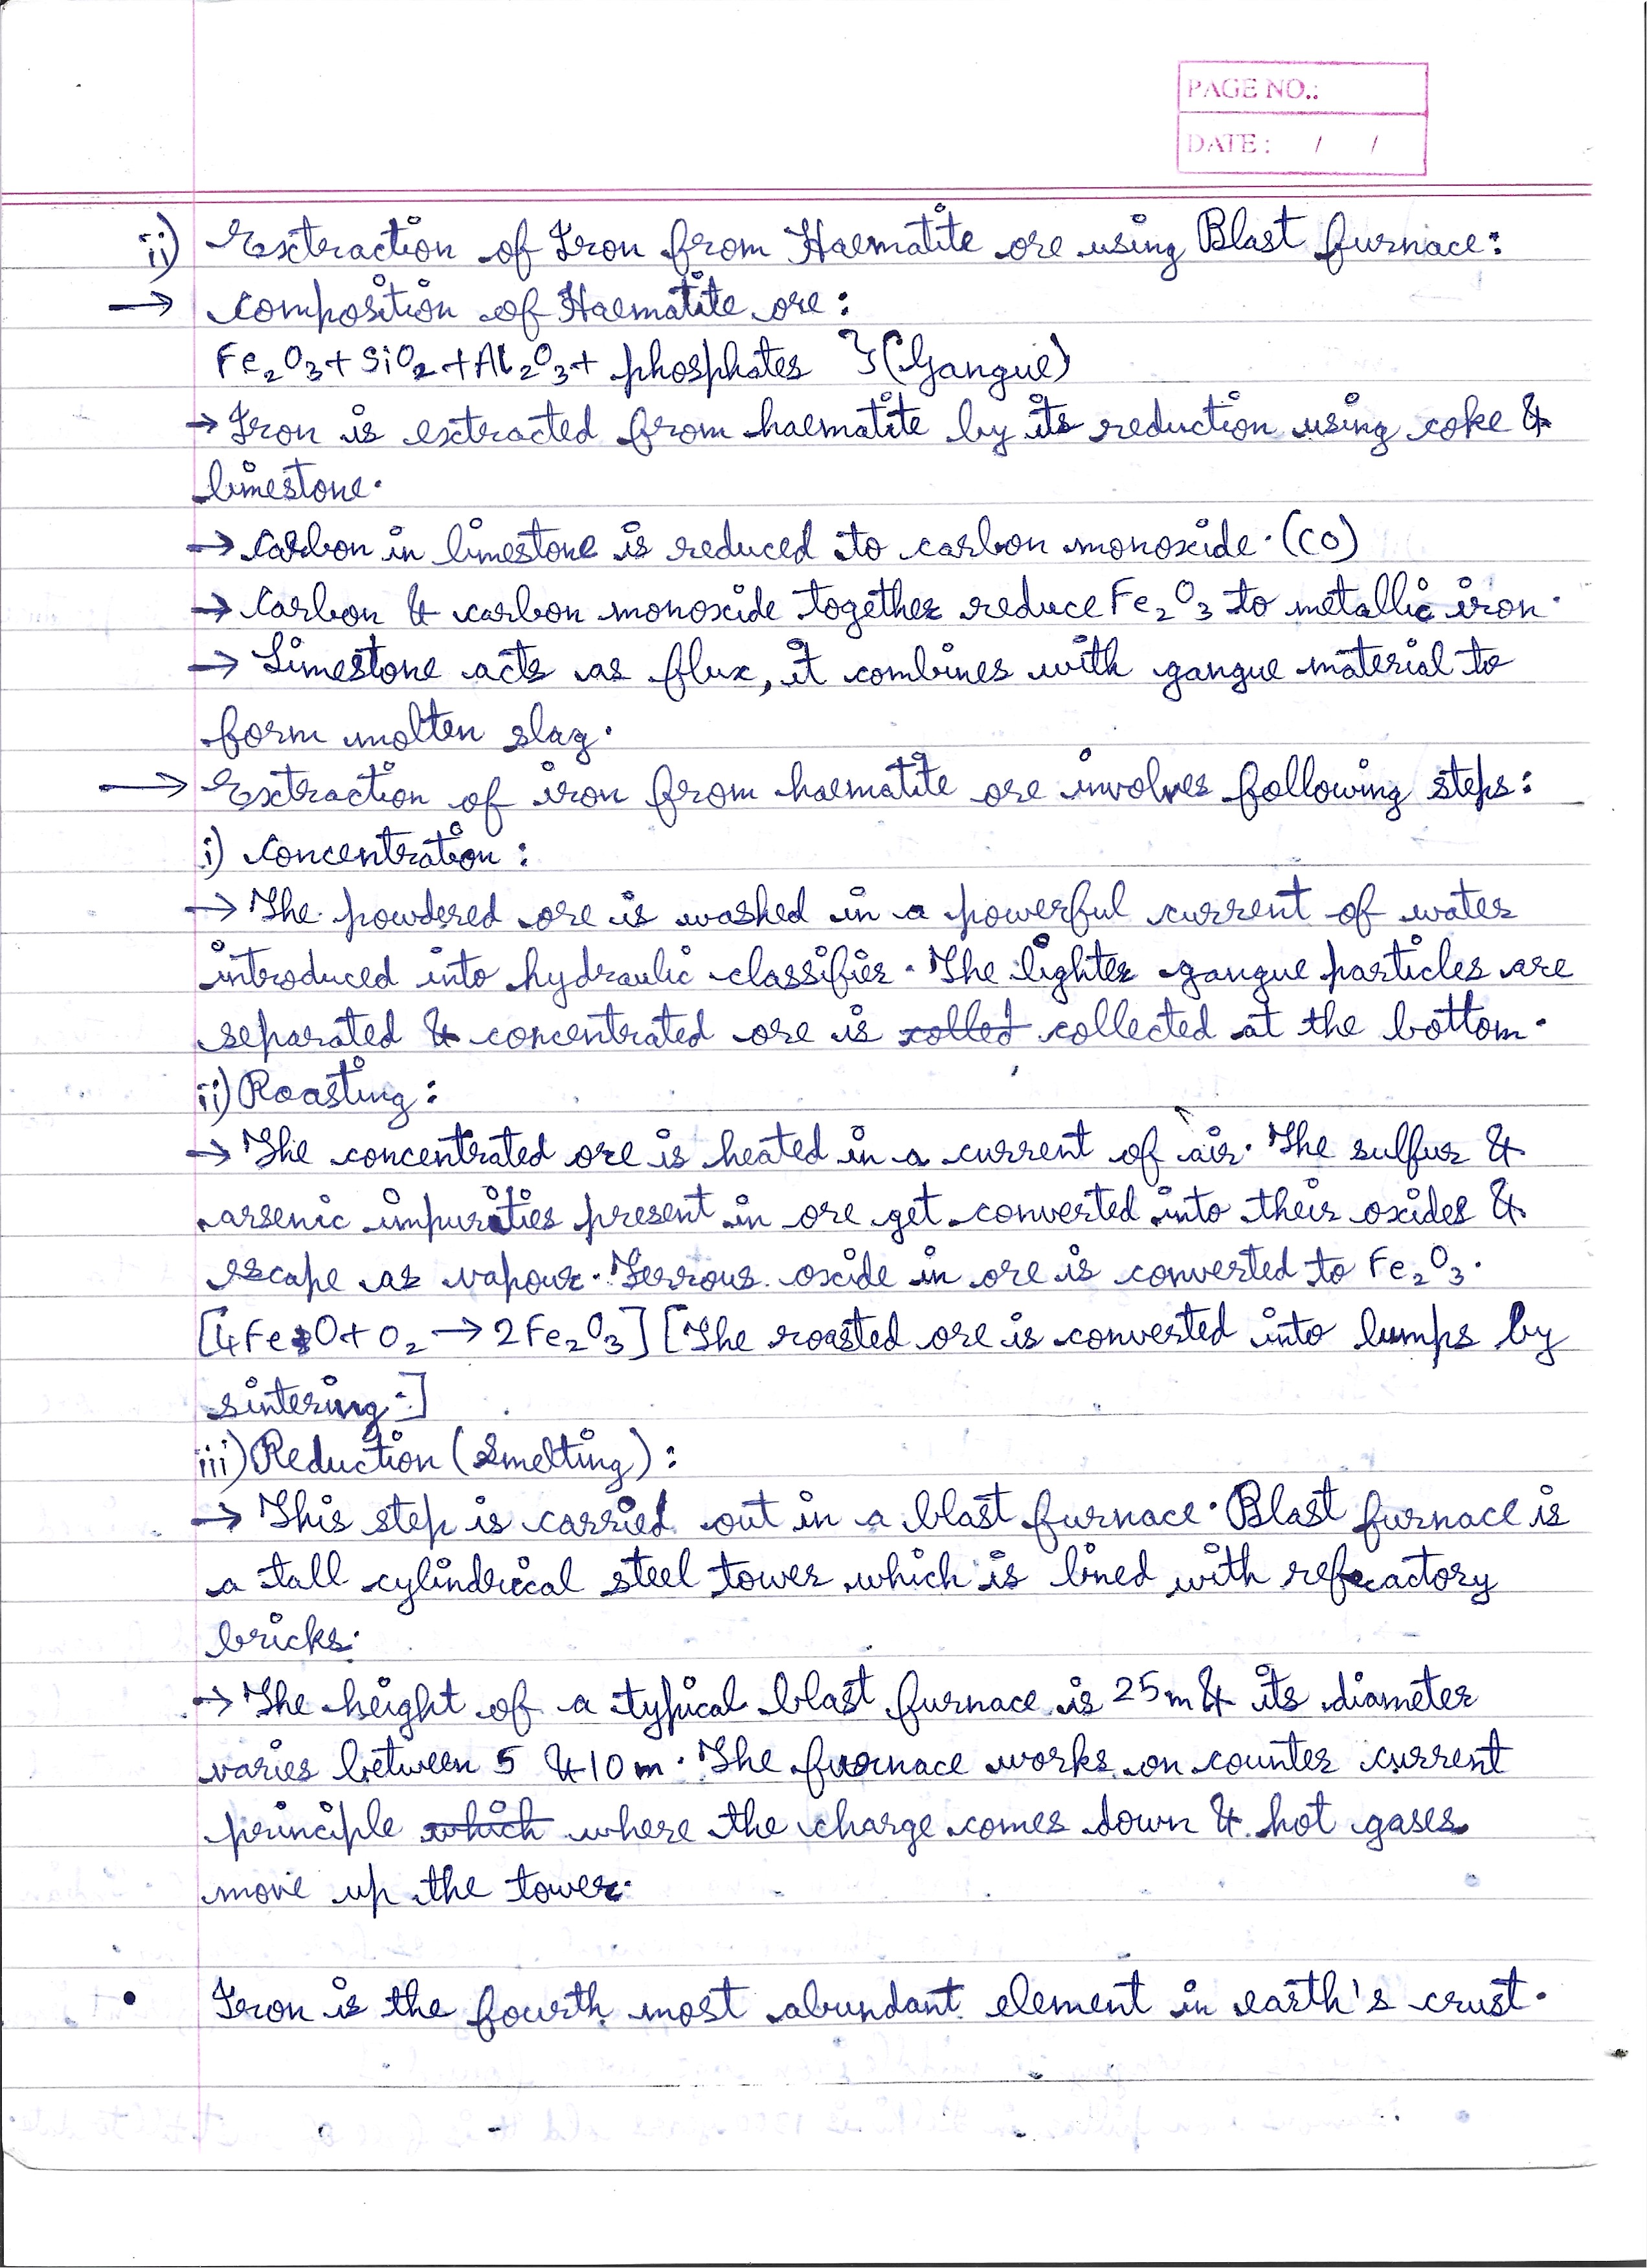 PAGE NO.:
DATE: / /
ii) Extraction of Iron from Haematite ore using Blast furnace:
→ Composition of Haematite ore:
Fe₂O₃ + SiO₂ + Al₂O₃ + phosphates } (Gangue)
→ Iron is extracted from haematite by its reduction using coke &
limestone.
→ Carbon in limestone is reduced to carbon monoxide. (CO)
→ Carbon & carbon monoxide together reduce Fe₂O₃ to metallic iron.
→ Limestone acts as flux, it combines with gangue material to
form molten slag.
→ Extraction of iron from haematite ore involves following steps:
i) Concentration:
→ The powdered ore is washed in a powerful current of water
introduced into hydraulic classifier. The lighter gangue particles are
separated & concentrated ore is collected at the bottom.
ii) Roasting:
→ The concentrated ore is heated in a current of air. The sulfur &
arsenic impurities present in ore get converted into their oxides &
escape as vapour. Ferrous oxide in ore is converted to Fe₂O₃.
[4FeO + O₂ → 2Fe₂O₃] [The roasted ore is converted into lumps by
sintering.]
iii) Reduction (Smelting):
→ This step is carried out in a blast furnace. Blast furnace is
a tall cylindrical steel tower which is lined with refractory
bricks.
→ The height of a typical blast furnace is 25m & its diameter
varies between 5 & 10 m. The furnace works on counter current
principle which where the charge comes down & hot gases
move up the tower.
• Iron is the fourth most abundant element in earth's crust.